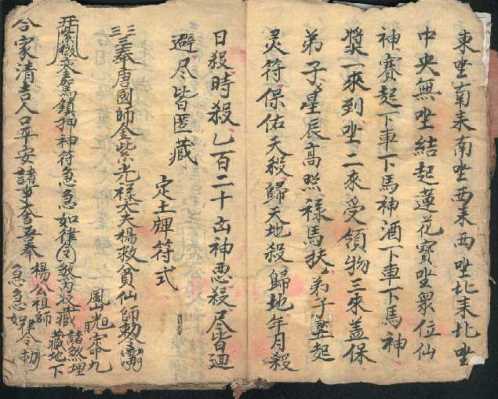 東坐南来南坐西来西坐北来北坐
中央無坐結起蓮花寶坐衆位仙
神賽起下車下馬神酒下車下馬神
漿一來到坐二來受領物三來盖保
弟子星辰高照様馬扶弟子竪起
灵符保佑天殺歸天地殺歸地年月殺
日殺時殺乙百二十凶神悪殺尽皆迴
避尽皆匿藏
定土碑符式
奉唐國師金紫光禄大夫楊救貧仙師勅
神符急急如律令
諸煞埋藏地下
合家清吉人口平安諸事
奉
楊公祖師
急急如律令